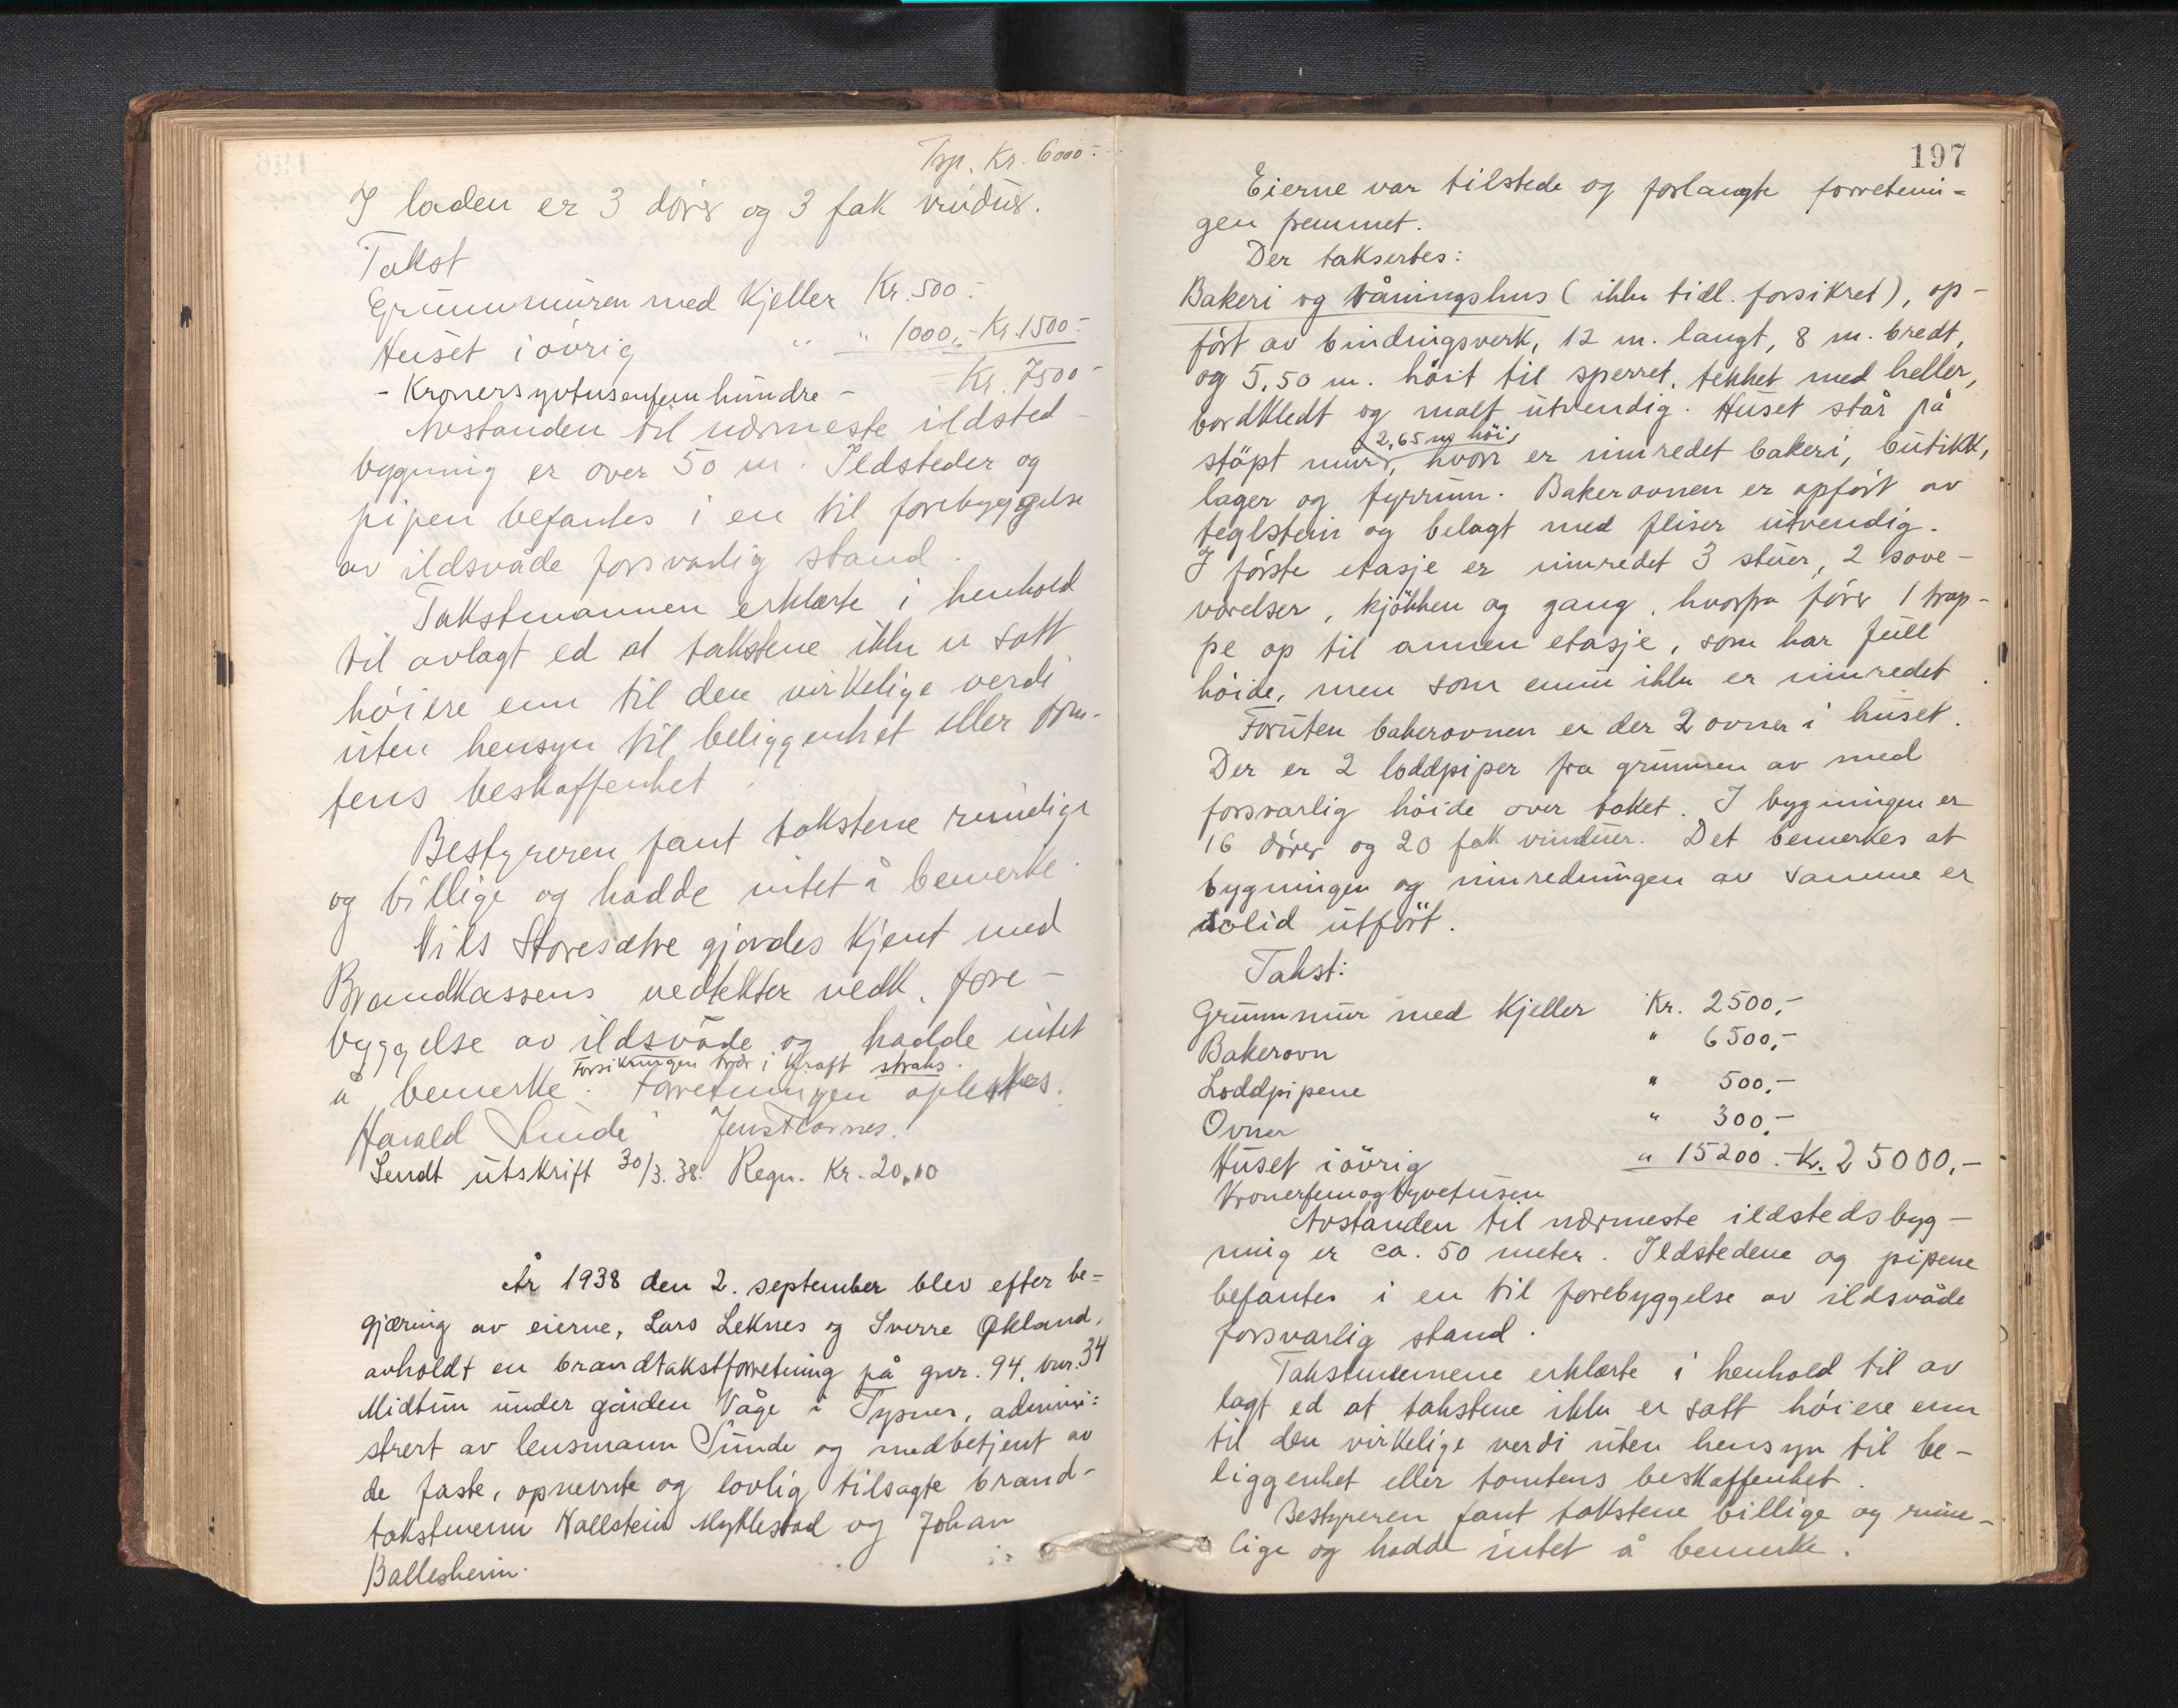 Trsp. Kr. 6000.-
I laden er 3 dörer og 3 fak vinduer.
Takst
Grunnmuren med kjeller Kr. 500.-
Huset iövrig " " 1000.- Kr. 1500.-
- Kronersyvtusenfemhundre - Kr. 7500.-
Avstanden til nærmeste ildsted-
bygning er over 50 m. Ildsteder og
pipen befantes i en til forebyggelse
av ildsvåde forsvarlig stand.
Takstmannen erklærte i henhold
til avlagt ed at takstene ikke er satt
höiere enn til den virkelige verdi
uten hensyn til beliggenhet eller tom-
tens beskaffenhet.
Bestyreren fant takstene rimelige
og billige og hadde intet å bemerke.
Nils Storesætre gjordes kjent med
Brandkassens vedtekter vedk. fore-
byggelse av ildsvåde og hadde intet
å bemerke. Forsikringen trær i kraft straks. Forretningen oplestes.
Harald Sunde Jens Flornes.
Sendt utskrift 30/3.38. Regn. Kr. 20,10
År 1938 den 2. september blev efter be=
gjæring av eierne, Lars Leknes og Sverre Økland,
avholdt en brandtakstforretning på gnr. 94, bnr. 34
Midttun under gården Våge i Tysnes, admini=
strert av lensmann Sunde og medbetjent av
de faste, opnevnte og lovlig tilsagte brand-
takstmenn Hallstein Myklestad og Johan
Ballesheim.
197
Eierne var tilstede og forlangte forretnin=
gen fremmet.
Der taksertes:
Bakeri og våningshus (ikke tidl. forsikret), op-
fört av bindingsverk, 12 m. langt, 8 m. bredt,
og 5,50 m. höit til sperret, tekket med heller,
bordkledt og malt utvendig. Huset står på
2,65 m höi
stöpt mur, hvori er innredet bakeri, butikk,
lager og fyrrum. Bakerovnen er opfört av
teglstein og belagt med fliser utvendig.
I förste etasje er innredet 3 stuer, 2 sove-
værelser, kjökken og gang, hvorfra förer 1 trap-
pe op til annen etasje, som har full
höide, men som ennu ikke er innredet.
Foruten bakerovnen er der 2 ovner i huset.
Der er 2 loddpiper fra grunnen av med
forsvarlig höide over taket. I bygningen er
16 dörer og 20 fak vinduer. Det bemerkes at
bygningen og innredningen av samme er
solid utfört.
Takst:
Grunnmur med kjeller Kr. 2500,-
Bakerovn " 6500,-
Loddpipene " 500,-
Ovner " 300,-
Huset iövrig " 15200.- Kr. 25000,-
Kronerfemogtyvetusen
Avstanden til nærmeste ildstedsbyg-
ning er ca. 50 meter. Ildstedene og pipene
befantes i en til forebyggelse av ildsvåde
forsvarlig stand.
Takstmennene erklærte i henhold til av
lagt ed at takstene ikke er satt höiere enn
til den virkelige verdi uten hensyn til be-
liggenhet eller tomtens beskaffenhet.
Bestyreren fant takstene billige og rime-
lige og hadde intet å bemerke.